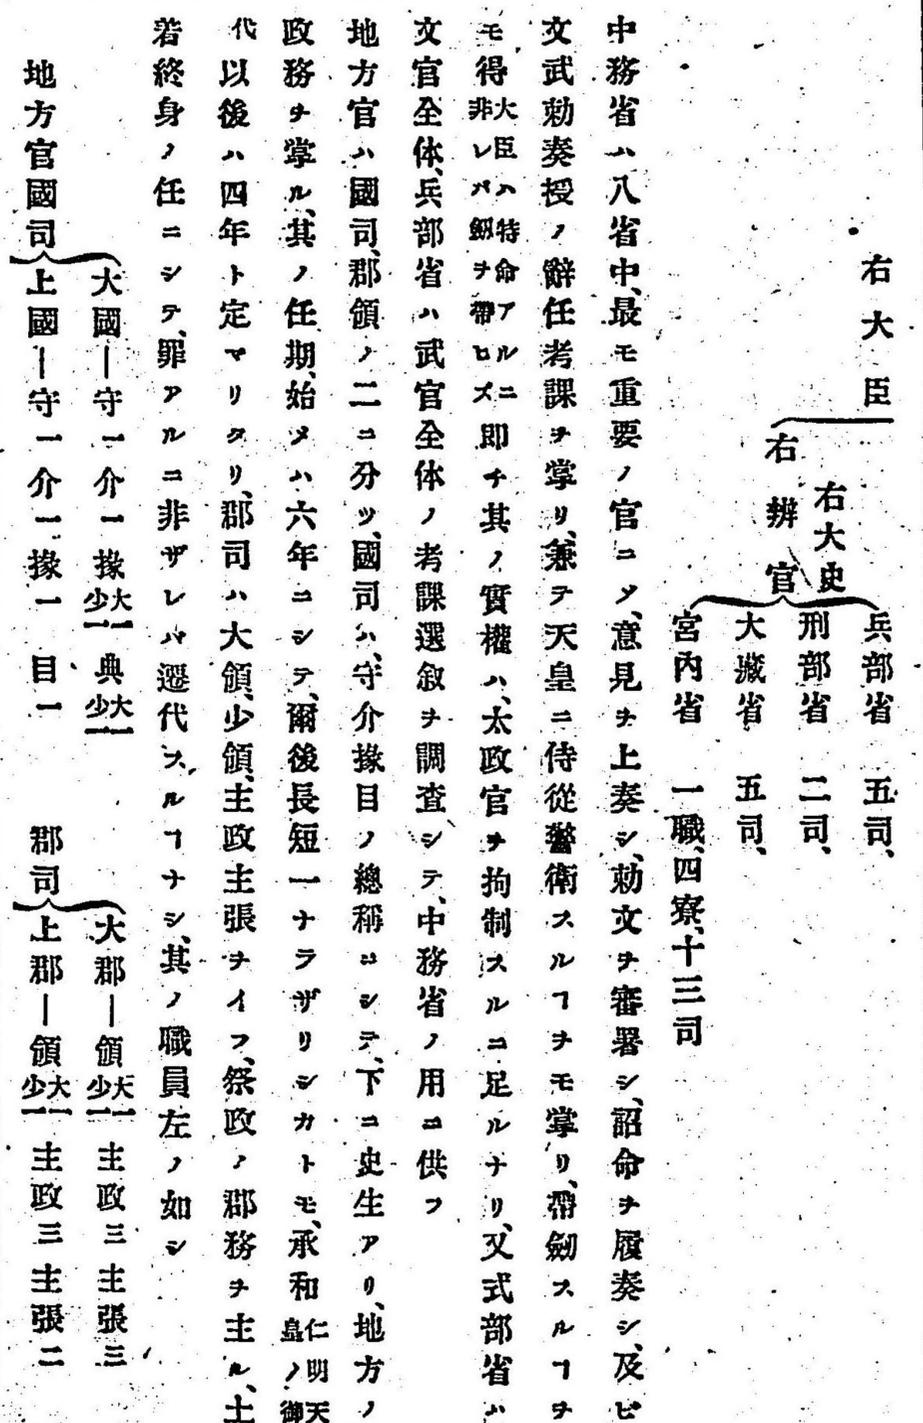 右大臣
右大史
右辨官
兵部省　五司、
刑部省　二司、
大藏省　五司、
宮內省　一職、四寮、十三司
中務省ハ八省中、最モ重要ノ官ニメ、意見ヲ上奏シ、勅文ヲ審署シ、詔命ヲ履奏シ、及ビ
文武勅奏授ノ辭任考課ヲ掌リ、兼テ天皇ニ侍從警衛スルヿヲモ掌リ、帶劒スルヿヲ
モ得大臣ハ特命アルニ非レバ劔ヲ帶ロズ即チ其ノ實權ハ、太政官ヲ拘制スルニ足ルナリ、又式部省ハ
文官全体、兵部省ハ武官全体ノ考課選敘ヲ調査シテ、中務省ノ用ニ供フ
地方官ハ國司、郡領ノ二ニ分ツ、國司ハ、守介掾目ノ總稱ニシテ、下ニ史生アリ、地方ノ
政務ヲ掌ル、其ノ任期、始メハ六年ニシテ、爾後長短一ナラザリシカトモ、承和仁明天皇ノ御
代以後ハ四年ト定マリタリ、郡司ハ大領、少領、主政主張ヲイフ、祭政ノ郡務ヲ主ル、土
着終身ノ任ニシテ、罪アルニ非ザレハ遷代スルヿナシ、其ノ職員左ノ如シ
地方官國司
大國―守一介一掾大一少一典大一少一
上國―守一介一掾一　目一
郡司
大郡―領大一少一　主政三　主張三
上郡―領大一少一　主政三　主張二